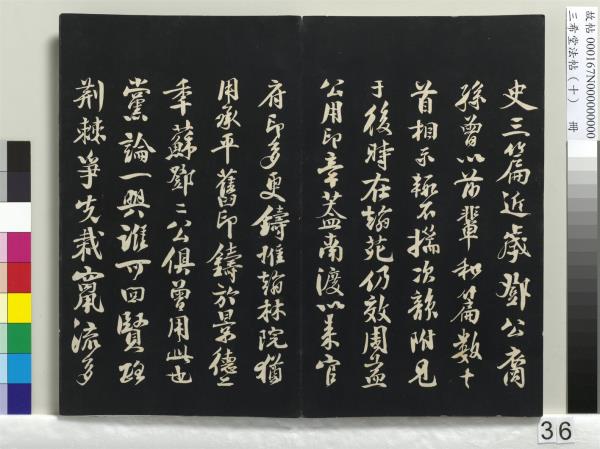 史三篇近歲鄧公裔
孫曾以前輩和篇數十
首相示輒不揣次韻附見
于後時在翰苑仍效周益
公用印章蓋南渡以來官
府印多更鑄惟翰林院猶
用承平舊印鑄於景德二
年蘇鄧二公俱曾用此也
黨論一興誰可回賢路
荊棘爭先栽竄流多
故帖 000167N000000000
三希堂法帖(十) 冊
36